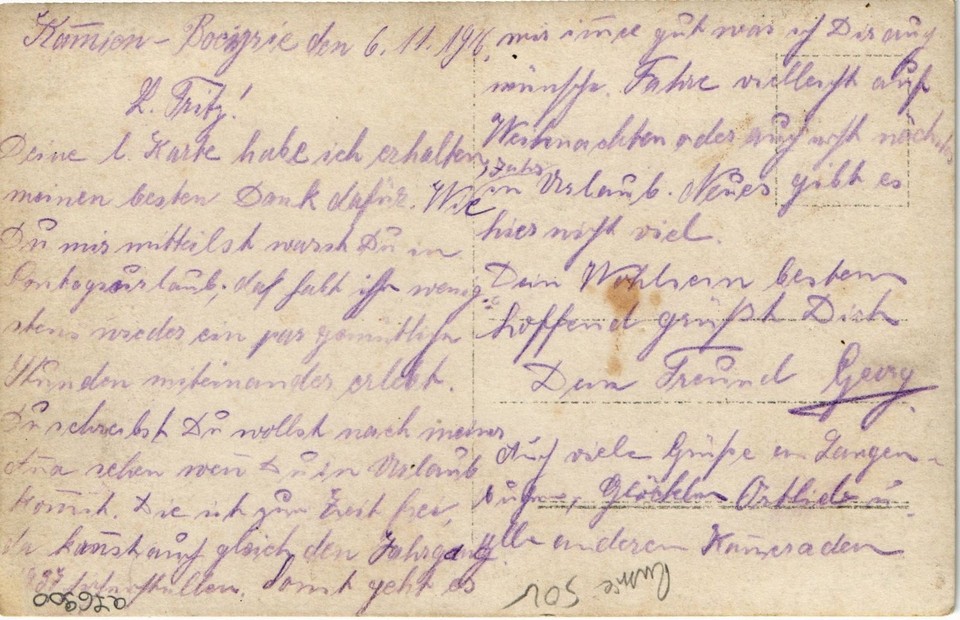 Kam̄ion - Bocizrie den 6. 11. 1916.
L. Fritz!
Deine l. Karte habe ich erhalten,
meinen besten Dank dafür. Wie
Du mir mitteilst warst Du in
Sontagsurlaub, da habt ihr wenig-
stens wieder ein par gemütliche
Stunden miteinander erlebt.
Du schreibst Du wollst nach meiner
sehen wen̄ Du in Urlaub
kom̄st. Die ist zur Zeit frei,
da kan̄st auch gleich den Jahrgang
Sonst geht es
mir im̄er gut was ich Dir auch
wünsche. Fahre vielleicht auf
Weihnachten oder auch erst nächstes
Jahr
in Urlaub. Neues gibt es
hier nicht viel.
Dein Wohlsein bestens
hoffend grüßt Dich
Dein Freund Georg
Auch viele Grüße an Langen-
Glöcklen Ortlieb u.
alle anderen Kam̄eraden
026900
502